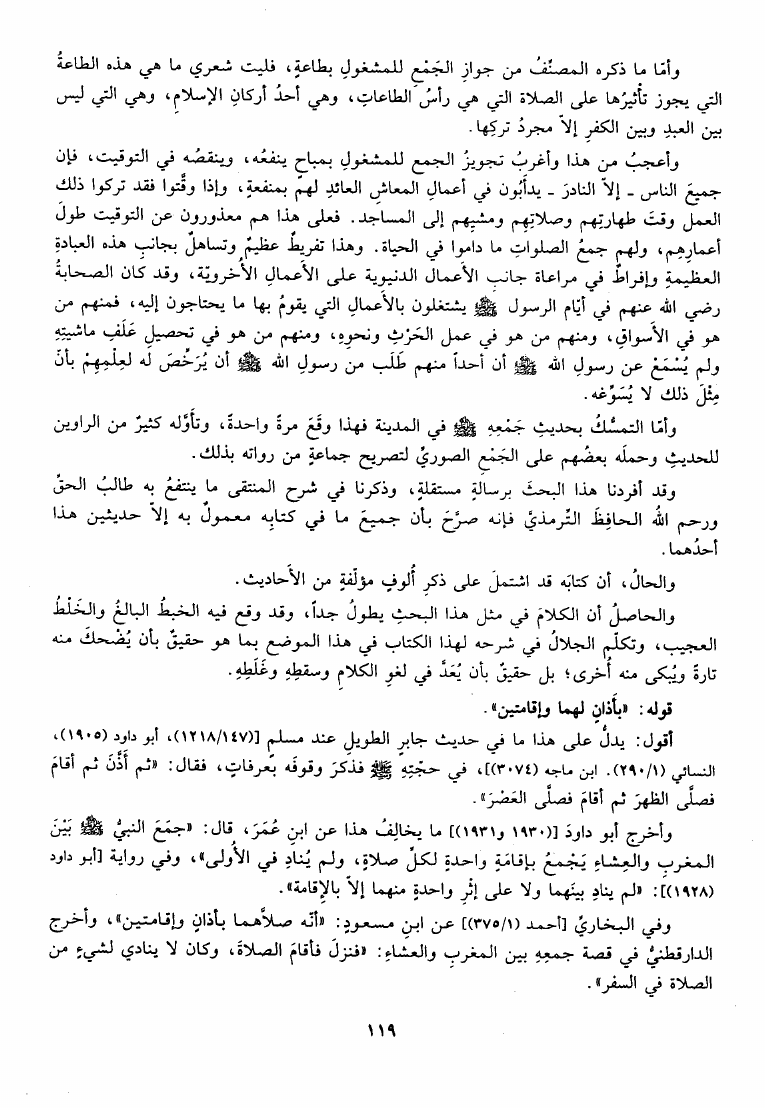 وأمّا ما ذكره المصنّفُ من جوازِ الجَمْعِ للمشغولِ بطاعةٍ، فليت شعري ما هي هذه الطاعةُ
التي يجوز تأثيرُها على الصلاة التي هي رأسُ الطاعاتِ، وهي أحدُ أركانِ الإسلامِ، وهي التي ليس
بين العبدِ وبين الكفرِ إلاّ مجردُ تركِها.
وأعجبُ من هذا وأغربُ تجويزُ الجمع للمشغولِ بمباحٍ ينفعُه، وينقصُه في التوقيت، فإن
جميعَ الناس ـ إلاّ النادرَ ـ يدأبُون في أعمالِ المعاشِ العائدِ لهم بمنفعةٍ، وإذا وقَّتوا فقد تركوا ذلك
العمل وقتَ طهارتِهم وصلاتِهم ومشيِهم إلى المساجد. فعلى هذا هم معذورون عن التوقيت طولَ
أعمارِهم، ولهم جمعُ الصلواتِ ما داموا في الحياة. وهذا تفريطٌ عظيمٌ وتساهلٌ بجانبِ هذه العبادةِ
العظيمةِ وإفراطٌ في مراعاة جانبِ الأعمال الدنيوية على الأعمالِ الأُخرويّة، وقد كان الصحابةُ
رضي الله عنهم في أيّام الرسول ﷺ يشتغلون بالأعمالِ التي يقومُ بها ما يحتاجون إليه، فمنهم من
هو في الأسواقِ، ومنهم من هو في عمل الحَرْثِ ونحوِه، ومنهم من هو في تحصيلِ عَلَفِ ماشيتِهِ
ولم يُسْمَعْ عن رسولِ الله ﷺ أن أحداً منهم طَلَب من رسولِ الله ﷺ أن يُرَخِّصَ لَه لعِلْمِهِمْ بأنَ
مِثْلَ ذلك لا يُسَوِّغه.
وأمّا التمسُّكُ بحديثِ جَمْعِهِ ﷺ في المدينة فهذا وقَعَ مرةً واحدةً، وتأوَّله كثيرٌ من الراوين
للحديثِ وحملَه بعضُهم على الجَمْعِ الصوريِّ لتصريح جماعةٍ من رواته بذلك.
وقد أفردنا هذا البحثَ برسالةٍ مستقلةٍ، وذكرنا في شرح المنتقى ما ينتفعُ به طالبُ الحقِّ
ورحم اللهُ الحافِظَ التّرمذيَّ فإنه صرَّحَ بأن جميعَ ما في كتابِه معمولٌ به إلاّ حديثين هذا
أحدُهما.
والحالُ، أن كتابَه قد اشتملَ على ذكرِ أُلوفٍ مؤلّفةٍ من الأحاديث.
والحاصلُ أن الكلامَ في مثل هذا البحثِ يطولُ جداً، وقد وقع فيه الخبطُ البالغُ والخَلْطُ
العجيب، وتكلّم الجلالُ في شرحه لهذا الكتاب في هذا الموضع بما هو حقيقٌ بأن يُضْحكَ منه
تارةً ويُبكى منه أُخرى؛ بل حقيقٌ بأن يُعَدَّ في لغوِ الكلامِ وسقطِهِ وغَلَطِهِ.
قوله: «بأذانٍ لهما وإقامتين».
أقول: يدلُّ على هذا ما في حديث جابرٍ الطويلِ عند مسلم [(١٢١٨/١٤٧)، أبو داود (١٩٠٥)،
النسائي (٢٩٠/١). ابن ماجه (٣٠٧٤)]، في حجّتِهِ ﷺ فذكرَ وقوفَه بعرفاتٍ، فقال: «ثم أَذَّنَ ثم أقامَ
فصلَّى الظهرَ ثم أقامَ فصلَّى العَصْرَ».
وأخرج أبو داودَ [(١٩٣٠ و١٩٣١)] ما يخالِفُ هذا عن ابنِ عُمَرَ، قال: «جمَعَ النبيُّ ﷺ بَيْنَ
المغربِ والعِشاءِ يَجْمَعُ بإقامَةٍ واحدةٍ لكلِّ صلاةٍ، ولم يُنادِ في الأُولى»، وفي رواية [أبو داود
(١٩٢٨)]: «لم ينادِ بينَهما ولا على إثْرِ واحدةٍ منهما إلاّ بالإقامة».
وفي البخاريِّ [أحمد (٣٧٥/١)] عن ابنِ مسعودٍ: «أنّه صلاَّهما بأذانٍ وإقامتين»، وأخرج
الدارقطنيُّ في قصة جمعِهِ بين المغربِ والعشاءِ: «فنزلَ فأقامَ الصلاةَ، وكان لا ينادي لشيءٍ من
الصلاة في السفر».
١١٩